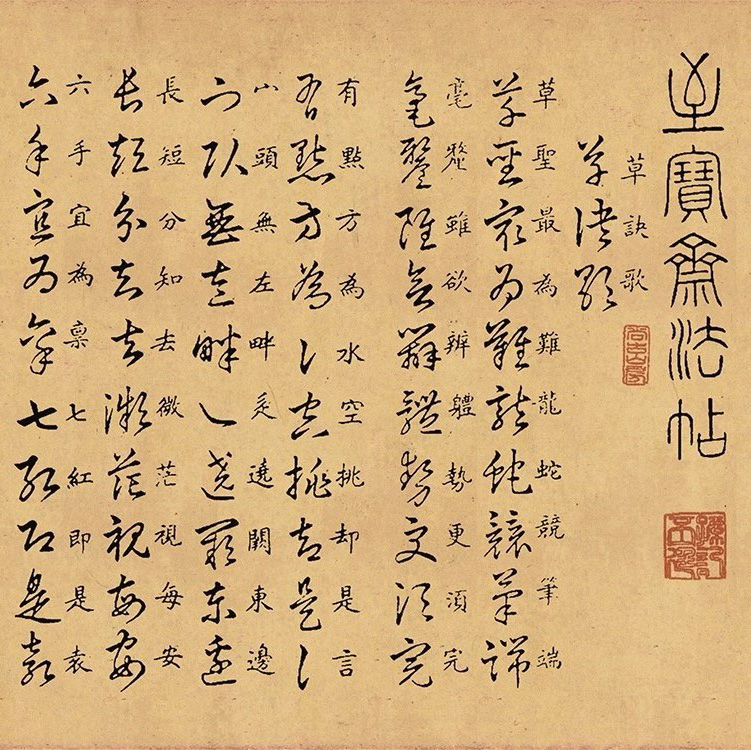 至寶齋法帖
草訣歌
草訣歌
草聖最為難龍蛇競筆端
草聖最為難龍蛇競筆端
毫釐雖欲辨體勢更須完
毫釐雖欲辨體勢更須完
有點方為水空挑却是言
有點方為水空挑却是言
山頭無左畔辵遶闕東邊
山頭無左畔辵遶闕東邊
長短分知去微茫視每安
長短分知去微茫視每安
六手宜為禀七紅即是袁
六手宜為禀七紅即是袁